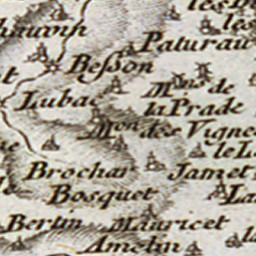 les D
les
hauvin
Paturau
Besson
Mns de
la Prade
Lubac
Mon des Vigne
le L
Brochar
Jamet
Bosquet
La
Bertin
Mauricet
Amelin
la